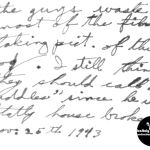 the guys waste
most of the film
taking pict. of the
dog. I still think
they should call
"Puddles" since he is
totally house broke
Nov 25th 1943